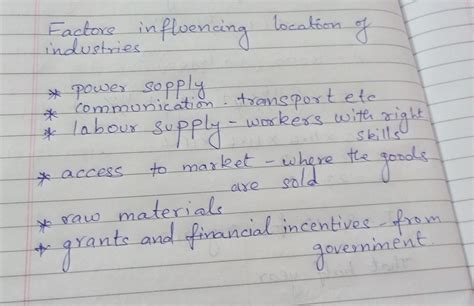 Factors influencing location of
industries
* power supply
* communication. transport etc
* labour supply - workers with right
skills
* access to market - where the goods
are sold
* raw materials
* grants and financial incentives - from
government.